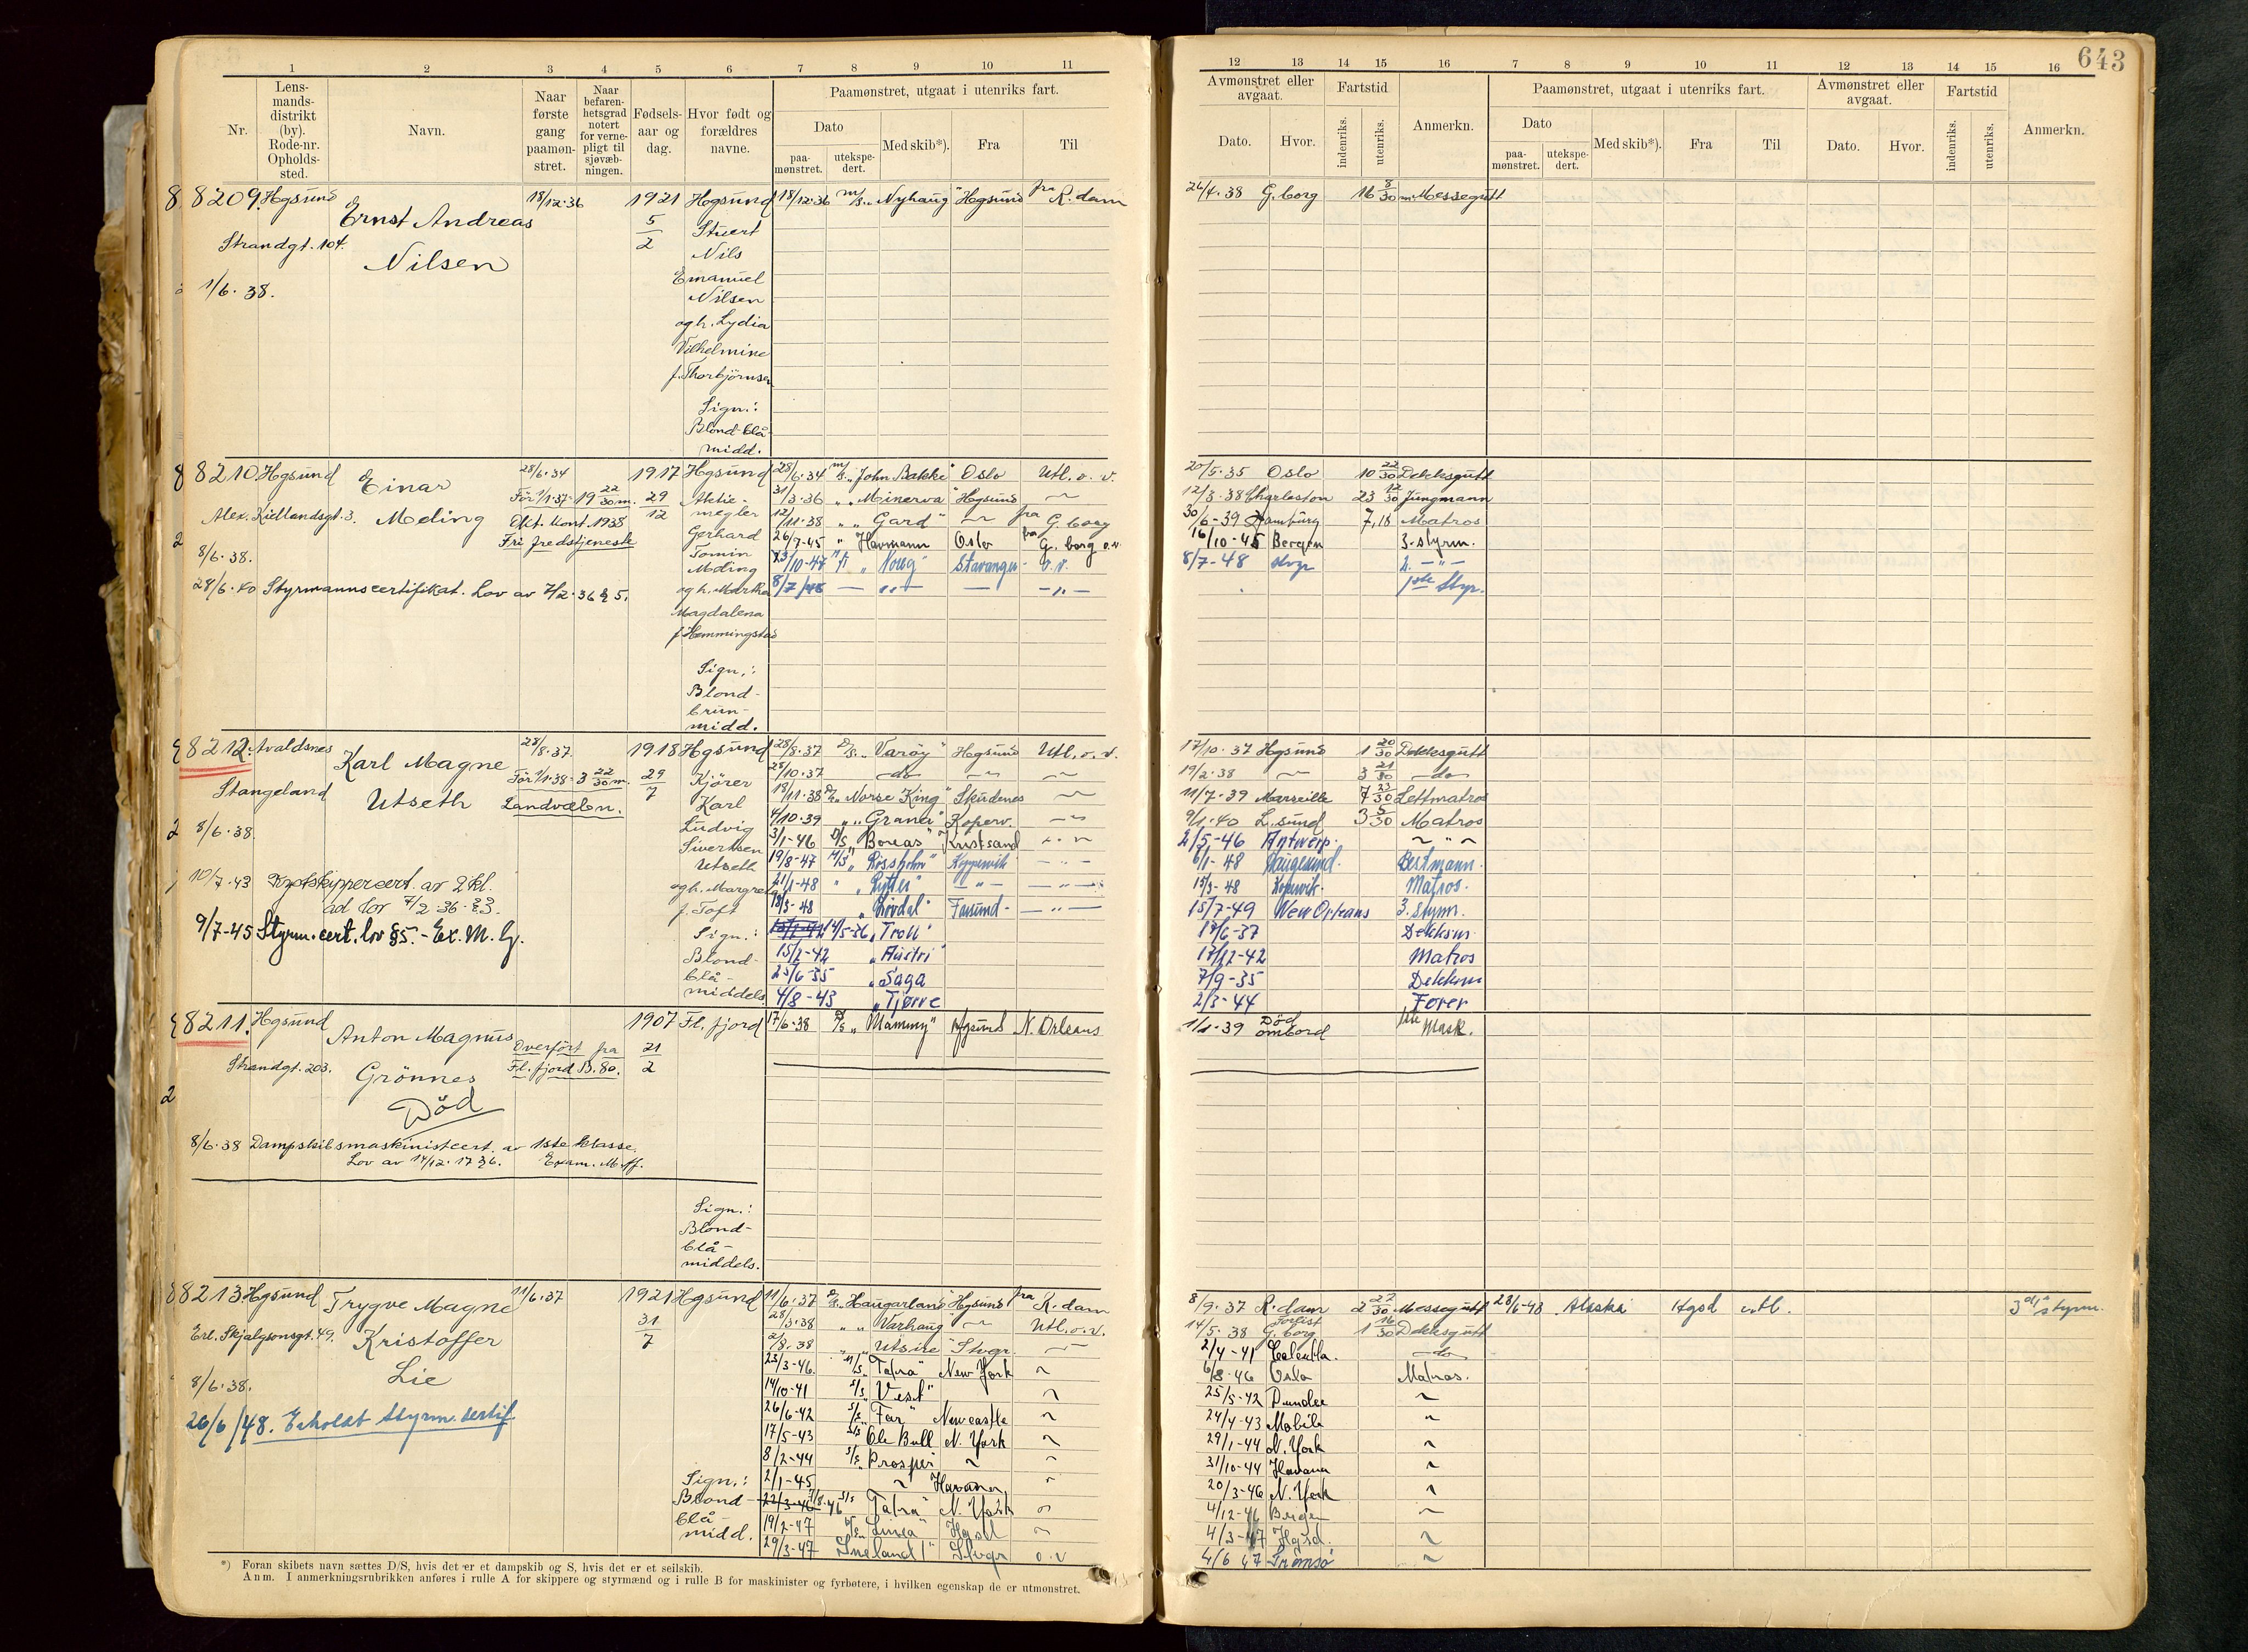 643
1 2 3 4 5 6 7 8 9 10 11 12 13 14 15 16 7 8 9 10 11 12 13 14 15 16
Nr.
Lens-
mands-
distrikt
(by).
Rode-nr.
Opholds-
sted.
Navn.
Naar
første
gang
paamøn-
stret.
Naar
befaren-
hetsgrad
notert
for verne-
pligt til
sjøvæb-
ningen.
Fødsels-
aar og
dag.
Hvor født og
forældres
navne.
Paamønstret, utgaat i utenriks fart.
Dato
paa-
mønstret.
utekspe-
dert.
Med skib*).
Fra
Til
Avmønstret eller
avgaat.
Dato.
Hvor.
Fartstid
indenriks.
utenriks.
Anmerkn.
Paamønstret, utgaat i utenriks fart.
Dato
paa-
mønstret.
utekspe-
dert.
Med skib*).
Fra
Til
Avmønstret eller
avgaat.
Dato.
Hvor.
Fartstid
indenriks.
utenriks.
Anmerkn.
8209. Hgsund
Ernst Andreas
Nilsen
Strandgt. 104.
1/6. 38.
18/12.36
1921
5/2
Hogsund
Stuert
Nils
Emanuel
Nilsen
og h. Lydia
Vilhelmine
f. Thorbjörnsen
Sign.:
Blond-blå-
midd.
18/12.36 m/s. „Nyhaug" Hogsund fra R.dam
26/4.38 G.borg 16 8/30 m. Messegutt
8210. Hgsund
Einar
Meling
Alex. Kiellandsgt. 3.
8/6. 38.
28/6.40 Styrmannscertifikat. Lov av 7/2.36 § 5.
28/6.34
För 1/1.37= 19 22/30 m.
Okt. Kont. 1938
Fri fredstjeneste
1917
29/12
Hgsund
Aktie-
megler
Gerhard
Tomin
Meling
og h. Martha
Magdalena
f. Hemmingstad
Sign.:
Blond-
brun-
midd.
28/6.34 m/s. „John Bakke" Oslo Utl. o. v.
31/3.36 „ „Minerva" Hgsund
12/11.38 „ „Gard" fra G.borg
26/7-45 „ Havmann Oslo fra G.borg o.v.
23/10-47 „Noreg" Stavanger o.v.
8/7/48 — „ — — — „ —
20/5.35 Oslo 10 22/30 Dekksgutt
12/3.38 Charleston 23 12/30 Jungmann
30/6-39 Hamburg 7,18 Matros
16/10-45 Bergen 3.styrm.
8/7-48 Stvgr 2. — „ —
1ste Styr.
8212. Avaldsnes
Karl Magne
Utseth
Stangeland
8/6.38.
10/7.43 Kystskippercert. av 2 kl.
ad lov 7/2.36. § 3.
9/7-45 Styrm. cert. lov § 5. - Ex. M. G.
28/8.37
För 1/1.38= 3 22/30 m.
Landvæbn.
1918
29/7
Hgsund
Kjörer
Karl
Ludvig
Sivertsen
Utseth
og h. Margrete
f. Toft
Sign.:
Blond-
blå-
middels.
28/8.37 D/s. „Varöy" Hogsund Utl. o. v.
28/10.37 —do—
18/11.38 D/s. „Norse King" Skudenes
4/10.39 „ „Grana" Koperv.
3/1-46 D/S „Boreas" Kristsand
19/8-47 M/S „Rossholm" Koppervik — „ —
21/1-48 „ „Rytter" — „ — — „ —
18/3-48 „Lövdal" Farsund — „ —
14/5-36 „Troll"
15/2-42 „Austri"
25/6-35 „Saga
4/8-43 „Tjørve
17/10.37 Hgsund 1 20/30 Dekksgutt
19/2.38 3 21/30 —do—
11/7.39 Marseille 7 23/30 Lettmatros
9/1.40 L.sund 3 5/30 Matros
2/5-46 Antwerp. „
6/1-48 Haugesund. Bestmann.
15/3-48 Kopervik. Matros.
15/7-49 New Orleans 3. styrm.
17/6-37 Dekksm.
17/12-42 Matros
7/9-35 Dekksm
2/3-44 Fører
8211. Hgsund
Anton Magnus
Grönnes
Död
Strandgt. 203.
8/6.38 Dampskibsmaskinistcert. av 1ste klasse.
Lov av 14/12.17 § 6. Exam. M. ff.
Overfört fra
Fl.fjord B. 80.
1907
21/2
Fl.fjord
Sign.:
Blond-
blå-
middels.
17/6.38 D/S „Mammy" Hgsund N. Orleans
1/1.39 Död ombord Mask.
8213 Hgsund
Trygve Magne
Kristoffer
Lie
Erl. Skjalgsonsgt. 49.
8/6.38.
26/6/48. Erholdt Styrm. sertif.
11/6.37
1921
31/7
Hgsund
Sign.:
Blond-
blå-
midd.
11/6.37 D/s. „Haugarland" Hgsund fra R.dam
28/3.38 „ „Varhaug" Utl. o. v.
2/8.38 „ „Utsire" Stvgr.
23/3-46. M/S „Tatra" New York
14/10-41 S/S „Vest"
26/6-42 S/S „Far" Newcastle
17/5-43 S/S Ole Bull N. York
8/2-44 S/S Prosper
2/1-45 Havana
22/3-46 S/S „Tatra" N. York
19/2-47 „Linea" Hgsd
29/3-47 Sneland 1" Stvgr o.v
8/9.37 R.dam 2 22/30 Messegutt
14/5.38 Forlist G.borg 1 16/30 Dekksgutt
2/4-41 Calcutta. —do—
6/8.46 Oslo Matros.
25/5-42 Dundee
24/4-43 Mobile
29/1-44 N. York
31/10-44 Havana
20/3-46 N. York
4/12-46 Bergen
4/3-47 Hgsd.
4/6 47 Tromsö
28/6-48 Alaska Hgsd utl. 3 styrm.
*) Foran skibets navn sættes D/S, hvis det er et dampskib og S, hvis det er et seilskib.
Anm. I anmerkningsrubrikken anføres i rulle A for skippere og styrmænd og i rulle B for maskinister og fyrbøtere, i hvilken egenskap de er utmønstret.